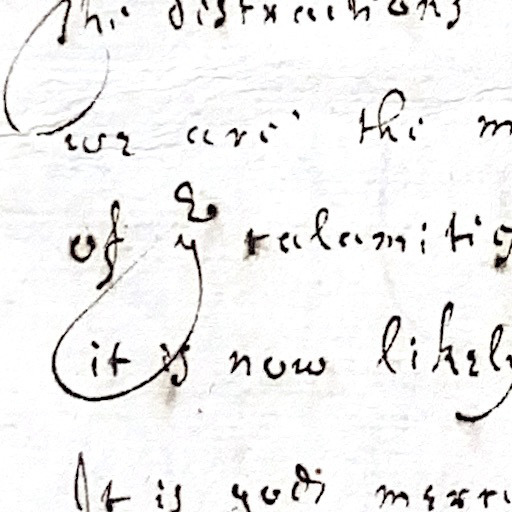 The distractions
we are the m
of yͤ calamitis
it is now likely
It is gods merci